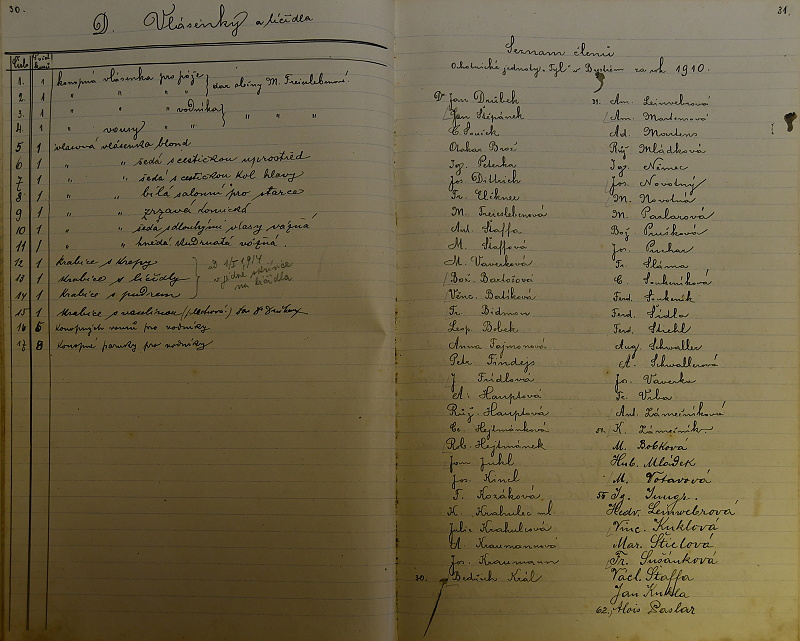 30.
D. Vlásenky a líčidla
Číslo
1. 1 konopná vlásenka pro páže } dar slečny M. Freislebenové
2. 1 " " " "
3. 1 " " " vodníka } " " "
4. 1 " vousy "
5 1 vlasová vlásenka blond
6 1 " " šedá s cestičkou uprostřed
7 1 " " šedá s cestičkou kol hlavy
8 1 " " bílá salonní pro starce
9 1 " " zrzavá komická
10 1 " " šedá s dlouhými vlasy vážná
11 1 " " hnědá kudrnatá vážná.
12 1 Krabice s krepy
13 1 Krabice s líčidly
14 1 Krabice s pudrem
od 1/5 1914
v jedné skřínce
na líčidla
15 1 Krabice s vaselinou
16 6 Konopných vousů pro vodníky
17 8 Konopné paruky pro vodníky
31.
Seznam členů
Ochotnické jednoty "Tyl" v za rok 1910.
Dr Jan Drúbek
Jan Štěpánek
C. Souček
Otakar Brož
Ig. Peterka
Jos. Dittrich
Fr. Elkner
M. Freislebenová
Ant. Staffa
M. Staffová
M. Vaverková
Bož. Bartošová
Věnc. Balíková
Fr. Bidmon
Leop. Bobek
Anna Fajmonová
Petr Findejs
J. Fridlová
A. Hauptová
Růž. Hauptová
Ce. Hejtmánková
Rob. Hejtmánek
Jan Juhl
Jos. Kincl
F. Kozáková
K. Krahulec ml
Julie Krahulcová
A. Kraumannová
Jos. Kraumann
30. Bedřich Král
31. Am. Leinwebrová
Am. Martensová
Ad. Martens
Růž. Mládková
Ig. Němec
Jos. Novotný
M. Novotná
M. Paslarová
Bož. Prušková
Jos. Puchar
Fr. Sláma
C. Soukeníková
Ferd. Soukeník
Ferd. Šidla
Ferd. Strehl
Aug. Schwaller
A. Schwallerová
Jos. Vaverka
Fr. Vrba
Ant. Zámečníková
51. K. Zámečník
M. Bobková
Hub. Mládek
M. Votavová
55 Ig. Jungr.
Hedv. Leinwebrová
Vinc. Kuklová
Mar. Štielová
Fr. Sušánková
Vacl. Staffa
Jan Kukla
62. Alois Paslar